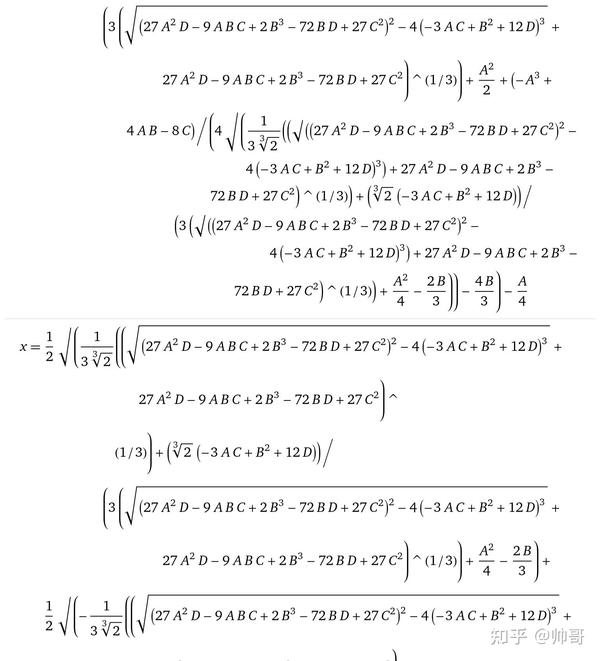 (3(√((27 A² D − 9 A B C + 2 B³ − 72 B D + 27 C²)² − 4 (−3 A C + B² + 12 D)³) +
27 A² D − 9 A B C + 2 B³ − 72 B D + 27 C²) ^ (1/3)) + A²/2 + (−A³ +
4 A B − 8 C) / (4 √(1/(3 ∛2) ((√((27 A² D − 9 A B C + 2 B³ − 72 B D + 27 C²)² −
4 (−3 A C + B² + 12 D)³) + 27 A² D − 9 A B C + 2 B³ −
72 B D + 27 C²) ^ (1/3)) + (∛2 (−3 A C + B² + 12 D)) /
(3 (√((27 A² D − 9 A B C + 2 B³ − 72 B D + 27 C²)² −
4 (−3 A C + B² + 12 D)³) + 27 A² D − 9 A B C + 2 B³ −
72 B D + 27 C²) ^ (1/3)) + A²/4 − 2 B/3)) − 4 B/3) − A/4
x = 1/2 √(1/(3 ∛2) ((√((27 A² D − 9 A B C + 2 B³ − 72 B D + 27 C²)² − 4 (−3 A C + B² + 12 D)³) +
27 A² D − 9 A B C + 2 B³ − 72 B D + 27 C²) ^
(1/3)) + (∛2 (−3 A C + B² + 12 D)) /
(3 (√((27 A² D − 9 A B C + 2 B³ − 72 B D + 27 C²)² − 4 (−3 A C + B² + 12 D)³) +
27 A² D − 9 A B C + 2 B³ − 72 B D + 27 C²) ^ (1/3)) + A²/4 − 2 B/3) +
1/2 √(− 1/(3 ∛2) ((√((27 A² D − 9 A B C + 2 B³ − 72 B D + 27 C²)² − 4 (−3 A C + B² + 12 D)³) +
知乎 @帅哥